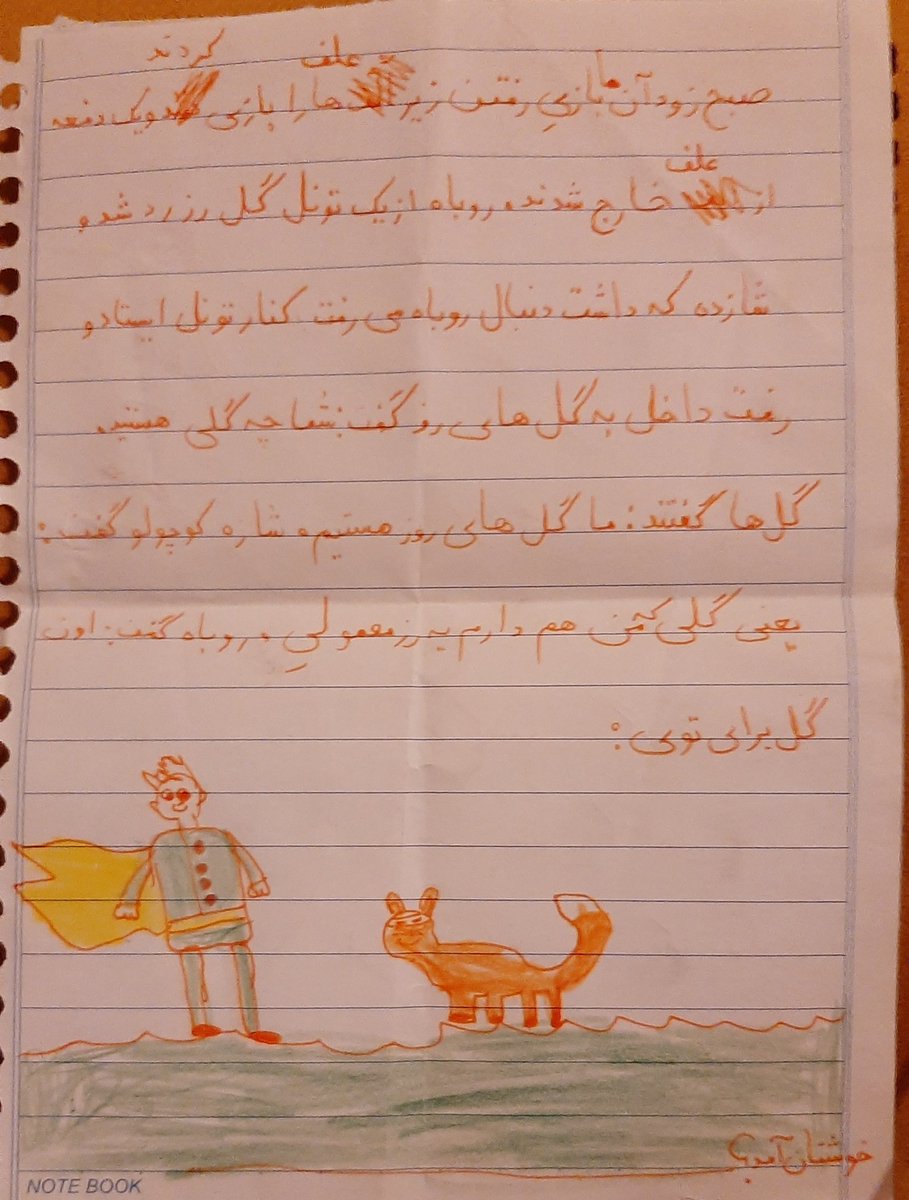 کردند علف
صبح زود آن ها بازیِ رفتن زیر ها را بازی و یک دفعه
علف
از خارج شدند و روباه از یک تونل گل رز رد شد و
شازده که داشت دنبال روباه می رفت کنار تونل ایستاد و
رفت داخل به گل های رز گفت: شما چه گلی هستید.
گل ها گفتند: ما گل های رز هستیم و شازه کوچولو گفت:
یعنی گلی که من هم دارم یه رز معمولیِ و روباه گفت: اون
گل برای توی:
خوشتان آمد؟
NOTE BOOK